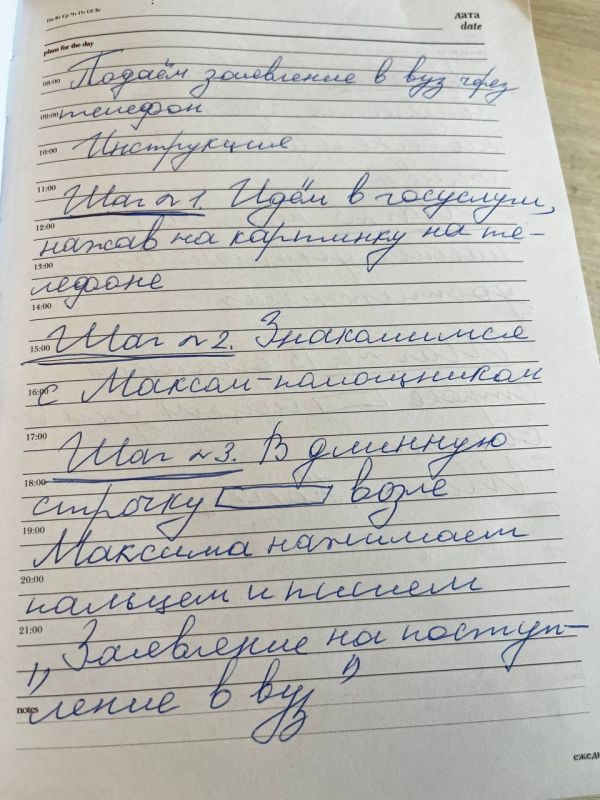 Пн Вт Ср Чт Пт Сб Вс
дата
date
plans for the day
08:00 Подаём заявление в вуз через
09:00 телефон
10:00 Инструкция
11:00 Шаг №1. Идём в госуслуги,
12:00 нажав на картинку на те-
13:00 лефоне
14:00
15:00 Шаг №2. Знакомимся
16:00 с Максом-помощником
17:00
Шаг №3. В длинную
18:00 строчку возле
19:00 Максима нажимаем
20:00 пальцем и пишем
21:00 "Заявление на поступ-
notes ление в вуз"
ежед